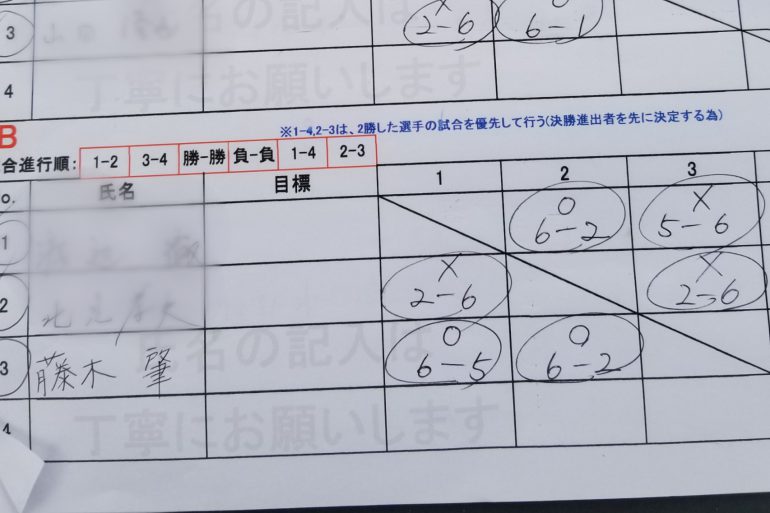 氏名の記入は
X O
3 2-6 6-1
4
丁寧にお願いします
B ※1-4,2-3は、2勝した選手の試合を優先して行う(決勝進出者を先に決定する為)
合進行順: 1-2 3-4 勝-勝 負-負 1-4 2-3
o. 氏名 目標 1 2 3
O X
1 6-2 5-6
X X
2 2-6 2-6
氏名の記入は
O O
3 藤木 肇 6-5 6-2
4
丁寧にお願いします